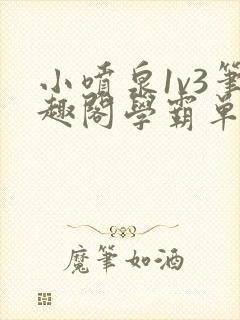 小噴泉1v3筆
趣閣學霸單
魔筆如酒